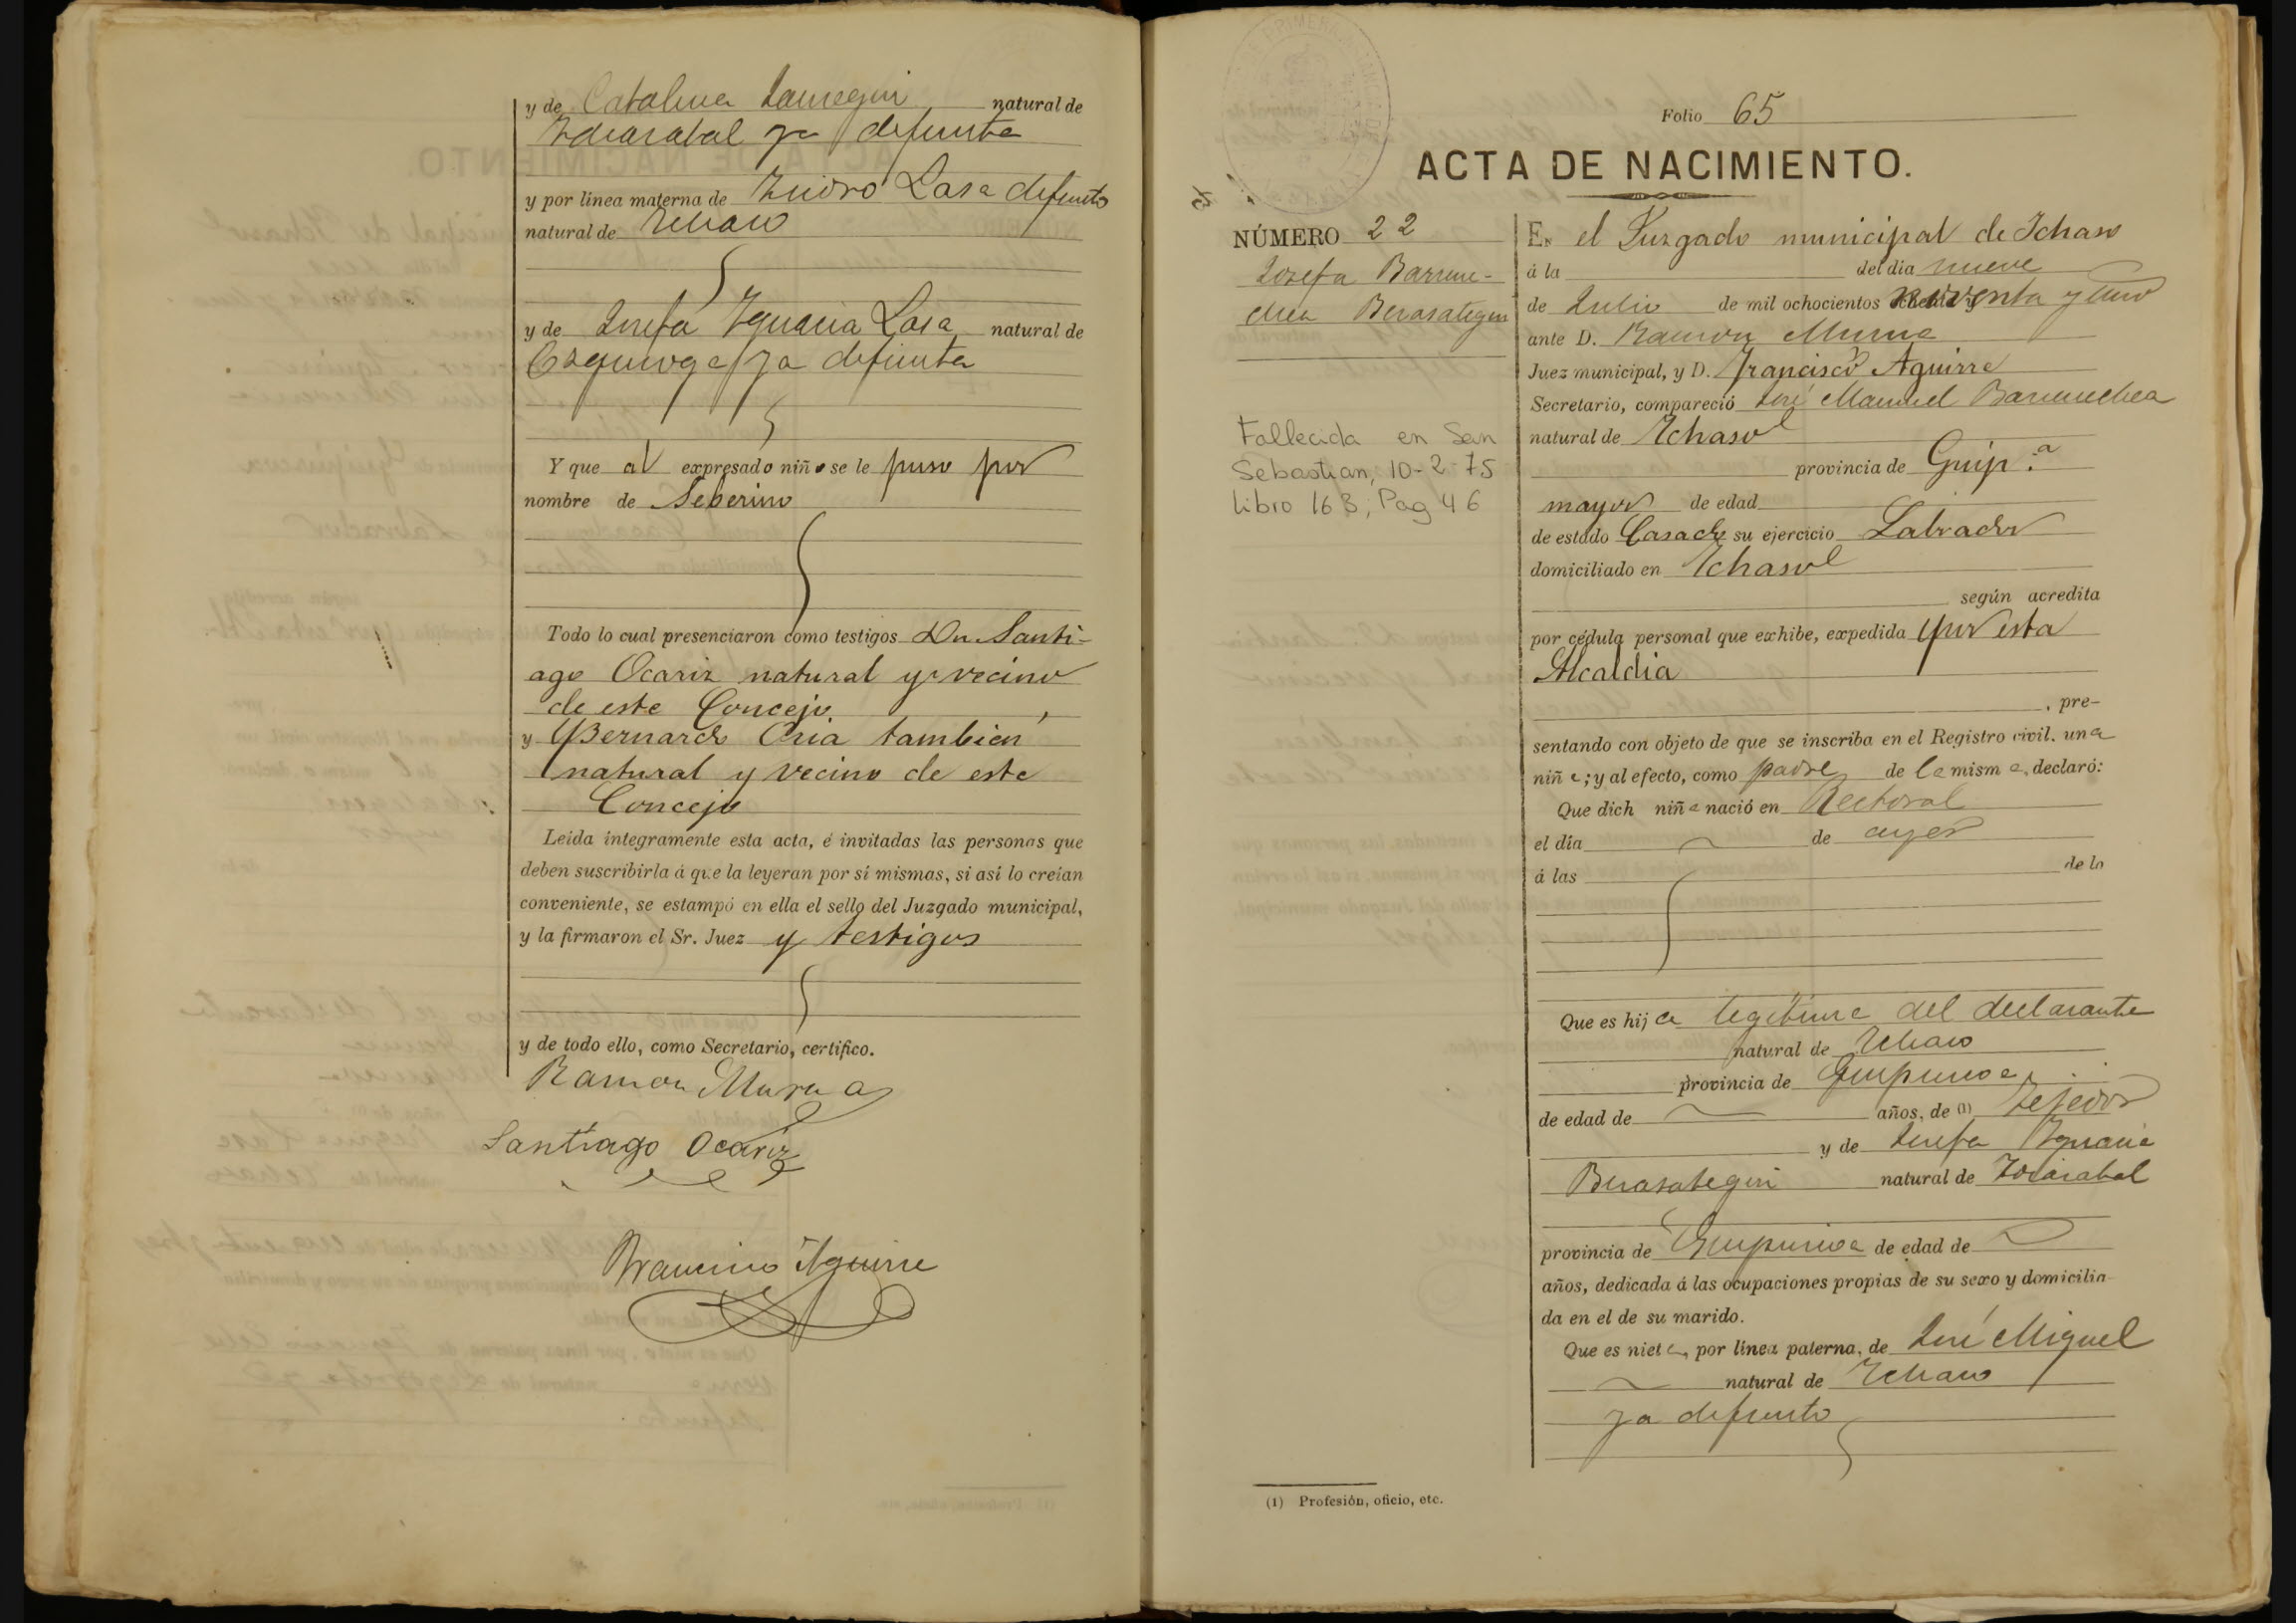 y de Catalina Jauregui natural de
Ydiazabal ya difunta
y por linea materna de Ysidro Lasa difunto
natural de Ychaso
y de Josefa Ygnacia Lasa natural de
Ezquioga ya difunta
Y que al expresado niño se le puso por
nombre de Seberino
Todo lo cual presenciaron como testigos Dn Santi-
ago Ocariz natural y vecino
de este Concejo,
y Bernardo Oria tambien
natural y vecino de este
Concejo
Leida integramente esta acta, é invitadas las personas que
deben suscribirla á que la leyeran por sí mismas, si así lo creían
conveniente, se estampó en ella el sello del Juzgado municipal,
y la firmaron el Sr. Juez y testigos
y de todo ello, como Secretario, certifico.
Ramon Murua
Santiago Ocariz
Francisco Aguirre
Folio 65
ACTA DE NACIMIENTO.
NÚMERO 22
Josefa Barrene-
chea Berasategui
Fallecida en San
Sebastian, 10-2-75
Libro 163, Pag 46
En el Juzgado municipal de Ychaso
á la del dia nueve
de Julio de mil ochocientos noventa y uno
ante D. Ramon Murua
Juez municipal, y D. Francisco Aguirre
Secretario, compareció José Manuel Barrenechea
natural de Ychaso
provincia de Guip.a
mayor de edad
de estado Casado su ejercicio Labrador
domiciliado en Ychaso
según acredita
por cédula personal que exhibe, expedida por esta
Alcaldia
, pre-
sentando con objeto de que se inscriba en el Registro civil, una
niña; y al efecto, como padre de la misma, declaró:
Que dich niña nació en Rectoral
el día de ayer
á las de la
Que es hija legitima del declarante
natural de Ychaso
provincia de Guipuzcoa
de edad de años, de (1) tejedor
y de Josefa Ygnacia
Berasategui natural de Ydiazabal
provincia de Guipuzcoa de edad de
años, dedicada á las ocupaciones propias de su sexo y domicilia-
da en el de su marido.
Que es nieta, por linea paterna, de José Miguel
natural de Ychaso
ya difunto
(1) Profesión, oficio, etc.